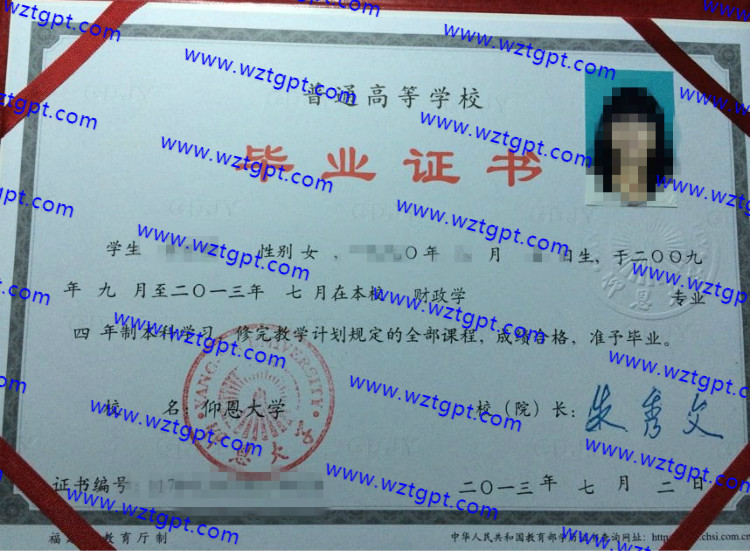 普通高等学校
毕业证书
学生 性别 女 , 〇年 月 日生, 于二〇〇九
年 九 月至二〇一三年 七 月在本校 财政学 专业
四 年制本科学习, 修完教学计划规定的全部课程, 成绩合格, 准予毕业。
YANG-EN UNIVERSITY
仰恩大学
校 名: 仰恩大学 校（院）长: 朱秀文
证书编号: 17
二〇一三年 七 月 二 日
教育厅制 中华人民共和国教育部学历 查询网址: http chsi.com.cn
www.wztgpt.com